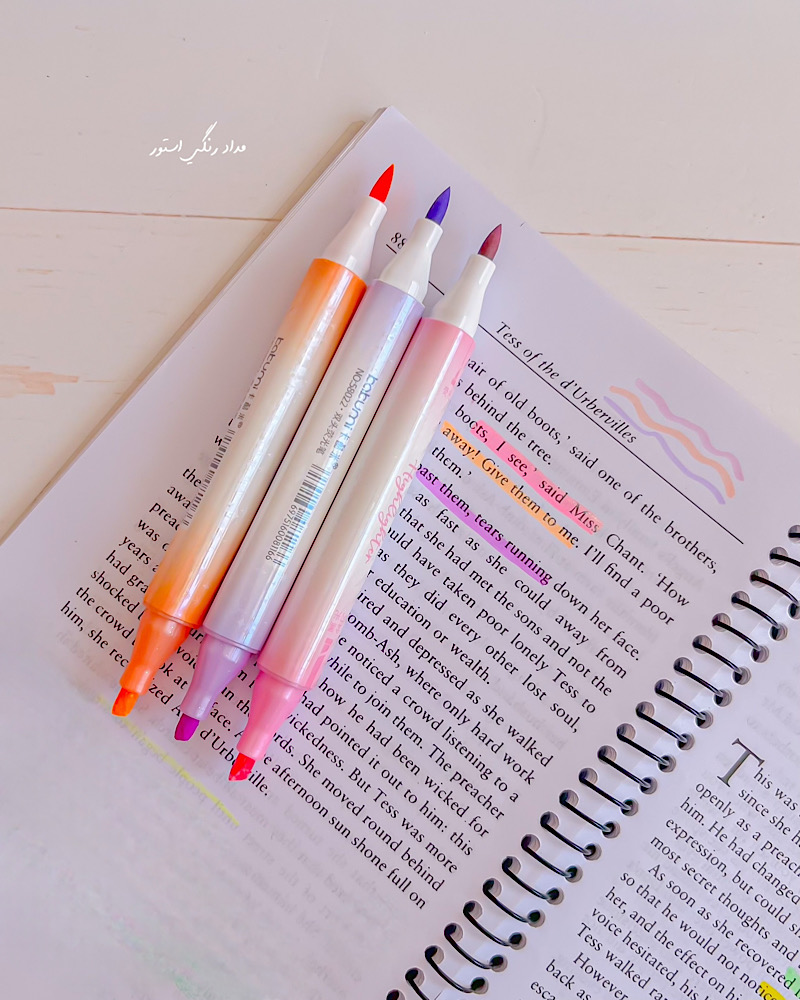 مداد رنگی استور
88
Tess of the d'Urbervilles
air of old boots,' said one of the brothers,
behind the tree.
boots, I see,' said Miss Chant. 'How
away! Give them to me. I'll find a poor
them.'
past them, tears running down her face.
as fast as she could away from
that she had met the sons and not the
ould have taken poor lonely Tess to
as they did every other lost soul,
r education or wealth.
ired and depressed as she walked
omb-Ash, where only hard work
e noticed a crowd listening to a
while to join them. The preacher
how he had been wicked for
had pointed it out to him: this
wickedness. But Tess was more
rds. She moved round behind
e afternoon sun shone full on
the
awa
preac
was c
years
had gra
shocked
the crowd
him, she rec
voi
in th
ook at
face.
ized A
d'Urberville.
takumi
takumi
NO:S8022
双头荧光笔
6975160081166
Highlighter
This was
since she h
openly as a preach
him. He had changed
expression, but could s
most secret thoughts and
As soon as she recovered
so that he would not notice
her, and the effect on his
voice hesitated, his
Tess walked ra
However
back as
esca